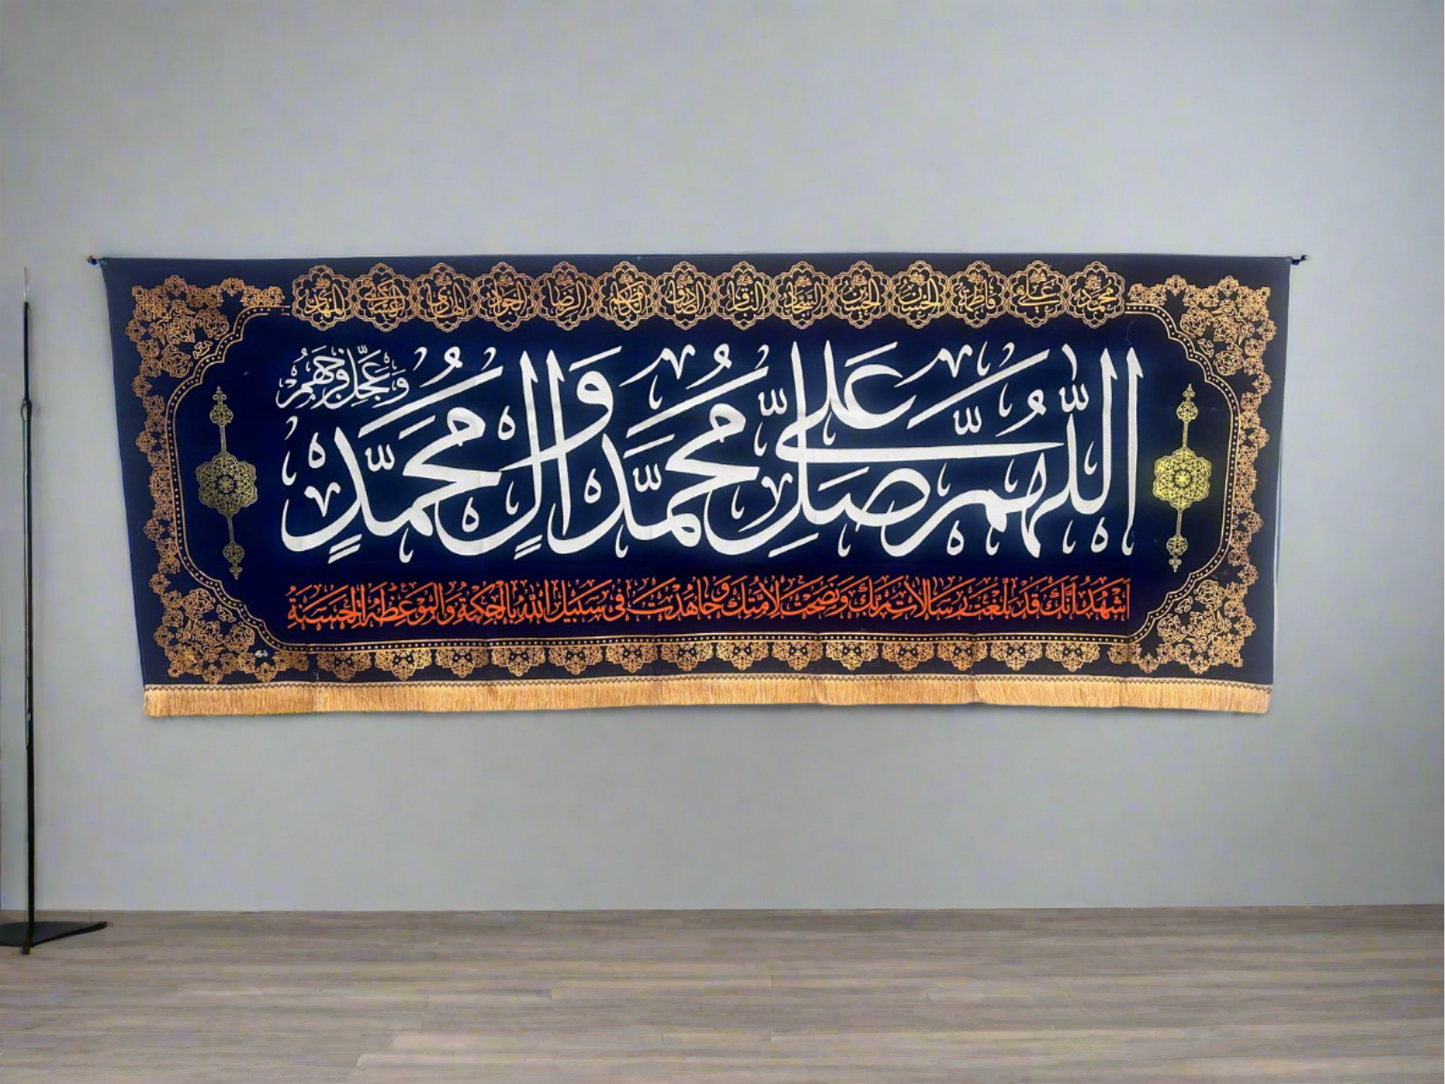 محمد علي فاطمة الحسن الحسين السجاد الباقر الصادق الكاظم الرضا الجواد الهادي العسكري المهدي
اللّٰهُمَّ صَلِّ عَلَى مُحَمَّدٍ وَآلِ مُحَمَّدٍ وَعَجِّلْ فَرَجَهُمْ
اَشْهَدُ اَنَّكَ قَدْ بَلَّغْتَ رِسَالَاتِ رَبِّكَ وَنَصَحْتَ لِاُمَّتِكَ وَجَاهَدْتَ فِي سَبِيلِ اللهِ بِالْحِكْمَةِ وَالْمَوْعِظَةِ الْحَسَنَةِ